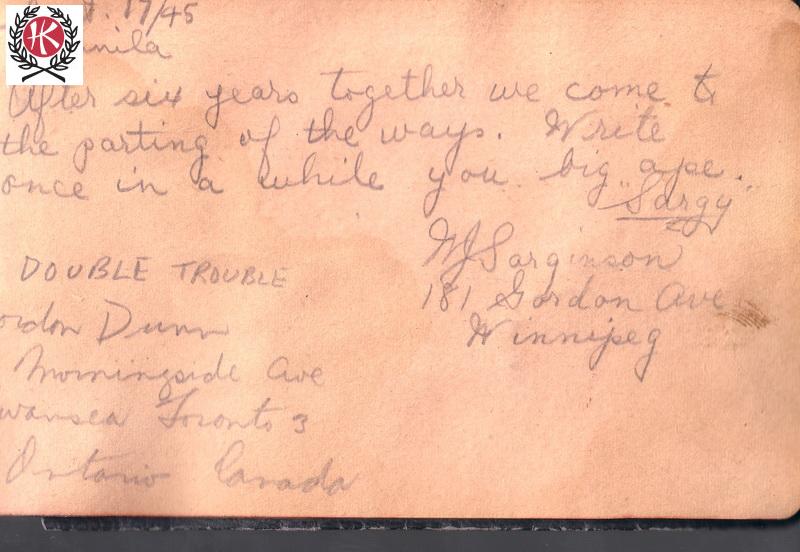 HK
t. 19/45
nila
After six years together we come to
the parting of the ways. Write
once in a while you big ape.
"Sargy"
WJ Sarginson
181 Gordon Ave
Winnipeg
DOUBLE TROUBLE
ordon Dunn
Morningside Ave
wansea Toronto 3
Ontario Canada